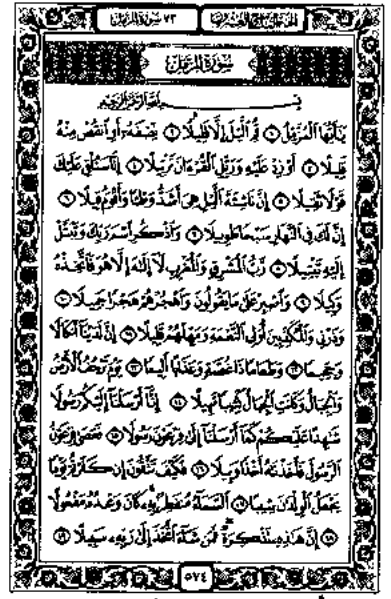 سورة المزمل ٧٣
سورة المزمل
بسم الله الرحمن الرحيم
يَٰٓأَيُّهَا ٱلْمُزَّمِّلُ ١ قُمِ ٱلَّيْلَ إِلَّا قَلِيلًا ٢ نِّصْفَهُۥٓ أَوِ ٱنقُصْ مِنْهُ
قَلِيلًا ٣ أَوْ زِدْ عَلَيْهِ وَرَتِّلِ ٱلْقُرْءَانَ تَرْتِيلًا ٤ إِنَّا سَنُلْقِى عَلَيْكَ
قَوْلًا ثَقِيلًا ٥ إِنَّ نَاشِئَةَ ٱلَّيْلِ هِىَ أَشَدُّ وَطْـًٔا وَأَقْوَمُ قِيلًا ٦
إِنَّ لَكَ فِى ٱلنَّهَارِ سَبْحًا طَوِيلًا ٧ وَٱذْكُرِ ٱسْمَ رَبِّكَ وَتَبَتَّلْ
إِلَيْهِ تَبْتِيلًا ٨ رَّبُّ ٱلْمَشْرِقِ وَٱلْمَغْرِبِ لَآ إِلَٰهَ إِلَّا هُوَ فَٱتَّخِذْهُ
وَكِيلًا ٩ وَٱصْبِرْ عَلَىٰ مَا يَقُولُونَ وَٱهْجُرْهُمْ هَجْرًا جَمِيلًا ١٠
وَذَرْنِى وَٱلْمُكَذِّبِينَ أُو۟لِى ٱلنَّعْمَةِ وَمَهِّلْهُمْ قَلِيلًا ١١ إِنَّ لَدَيْنَآ أَنكَالًا
وَجَحِيمًا ١٢ وَطَعَامًا ذَا غُصَّةٍ وَعَذَابًا أَلِيمًا ١٣ يَوْمَ تَرْجُفُ ٱلْأَرْضُ
وَٱلْجِبَالُ وَكَانَتِ ٱلْجِبَالُ كَثِيبًا مَّهِيلًا ١٤ إِنَّآ أَرْسَلْنَآ إِلَيْكُمْ رَسُولًا
شَٰهِدًا عَلَيْكُمْ كَمَآ أَرْسَلْنَآ إِلَىٰ فِرْعَوْنَ رَسُولًا ١٥ فَعَصَىٰ فِرْعَوْنُ
ٱلرَّسُولَ فَأَخَذْنَٰهُ أَخْذًا وَبِيلًا ١٦ فَكَيْفَ تَتَّقُونَ إِن كَفَرْتُمْ يَوْمًا
يَجْعَلُ ٱلْوِلْدَٰنَ شِيبًا ١٧ ٱلسَّمَآءُ مُنفَطِرٌۢ بِهِۦ كَانَ وَعْدُهُۥ مَفْعُولًا
١٨ إِنَّ هَٰذِهِۦ تَذْكِرَةٌ فَمَن شَآءَ ٱتَّخَذَ إِلَىٰ رَبِّهِۦ سَبِيلًا ١٩
٥٧٤